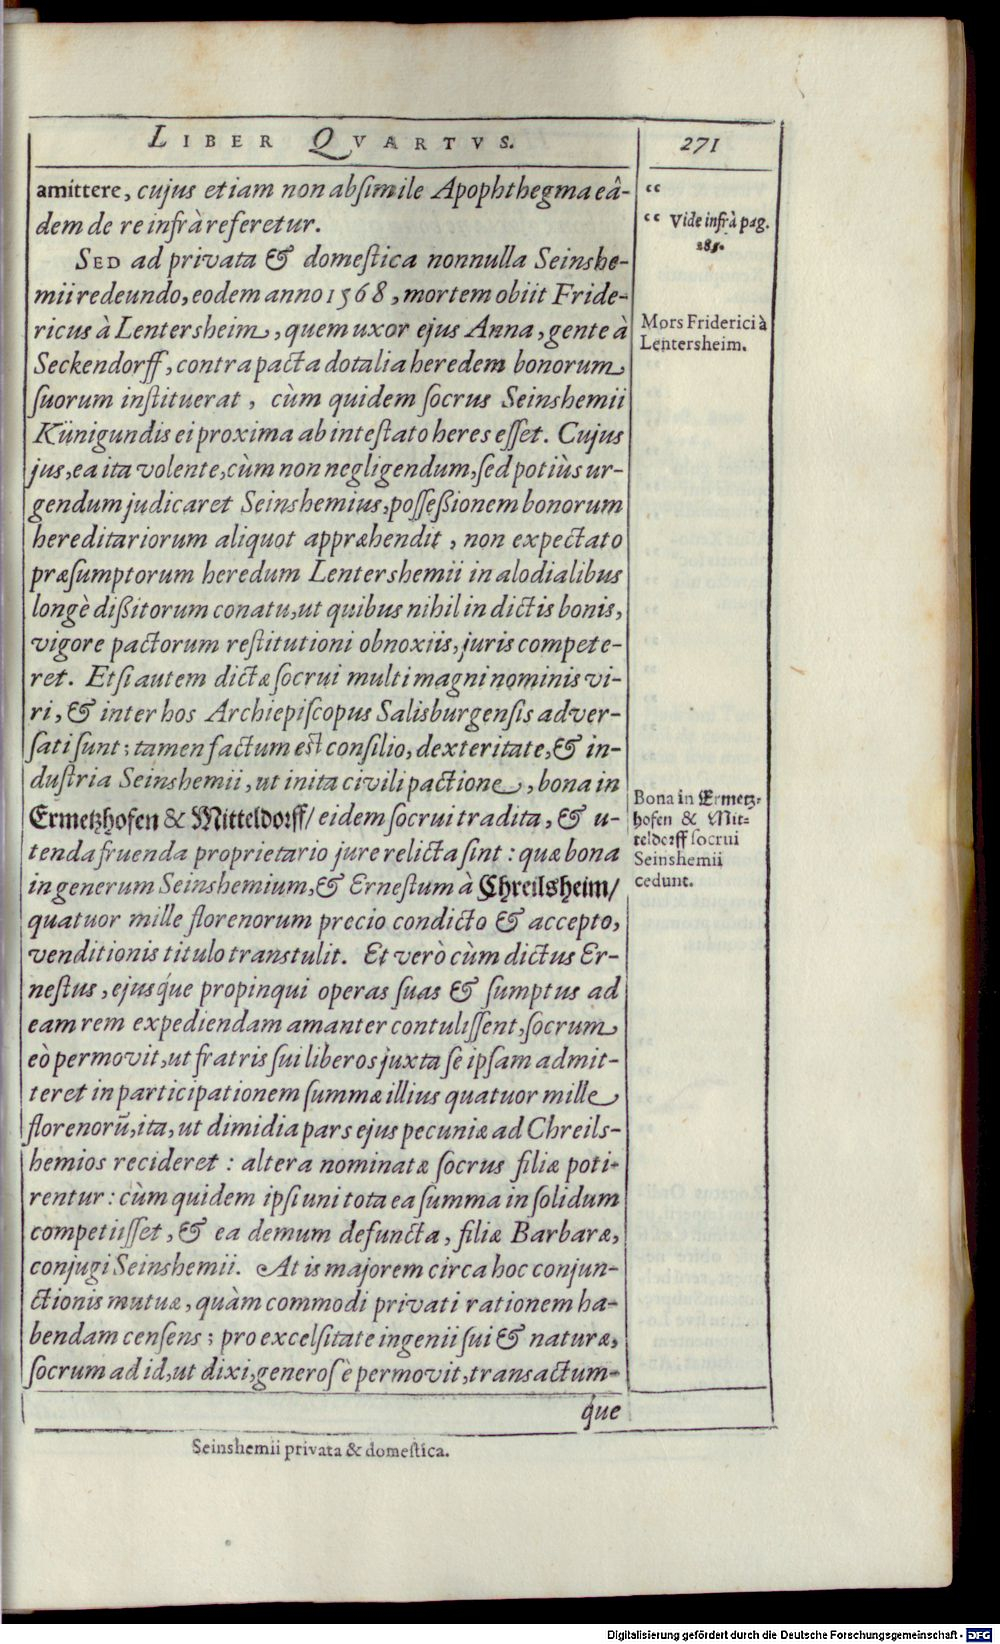 LIBER QVARTVS.
271
amittere, cujus etiam non absimile Apophthegma eâ-
dem de re infrà referetur.
“
“ Vide infrà pag.
281.
SED ad privata & domestica nonnulla Seinshe-
mii redeundo, eodem anno 1568, mortem obiit Fride-
ricus à Lentersheim, quem uxor ejus Anna, gente à
Seckendorff, contra pacta dotalia heredem bonorum
suorum instituerat, cùm quidem socrus Seinshemii
Künigundis ei proxima ab intestato heres esset. Cujus
jus, ea ita volente, cùm non negligendum, sed potiùs ur-
gendum judicaret Seinshemius, possessionem bonorum
hereditariorum aliquot appræhendit, non expectato
præsumptorum heredum Lentershemii in alodialibus
longè dissitorum conatu, ut quibus nihil in dictis bonis,
vigore pactorum restitutioni obnoxiis, juris compete-
ret. Etsi autem dictæ socrui multi magni nominis vi-
ri, & inter hos Archiepiscopus Salisburgensis adver-
sati sunt; tamen factum est consilio, dexteritate, & in-
dustria Seinshemii, ut inita civili pactione, bona in
Ermetzhofen & Mitteldorff/ eidem socrui tradita, & u-
tenda fruenda proprietario jure relicta sint: quæ bona
in generum Seinshemium, & Ernestum à Chreilsheim/
quatuor mille florenorum precio condicto & accepto,
venditionis titulo transtulit. Et verò cùm dictus Er-
nestus, ejusque propinqui operas suas & sumptus ad
eam rem expediendam amanter contulissent, socrum
eò permovit, ut fratris sui liberos juxta se ipsam admit-
teret in participationem summæ illius quatuor mille
florenorũ, ita, ut dimidia pars ejus pecuniæ ad Chreils-
hemios recideret: altera nominatæ socrus filiæ poti-
rentur: cùm quidem ipsi uni tota ea summa in solidum
competiisset, & ea demum defuncta, filiæ Barbaræ,
conjugi Seinshemii. At is majorem circa hoc conjun-
ctionis mutuæ, quàm commodi privati rationem ha-
bendam censens; pro excelsitate ingenii sui & naturæ,
socrum ad id, ut dixi, generosè permovit, transactum-
que
Mors Friderici à
Lentersheim.
Bona in Ermetz-
hofen & Mit-
teldorff socrui
Seinshemii
cedunt.
Seinshemii privata & domestica.
Digitalisierung gefördert durch die Deutsche Forschungsgemeinschaft - DFG